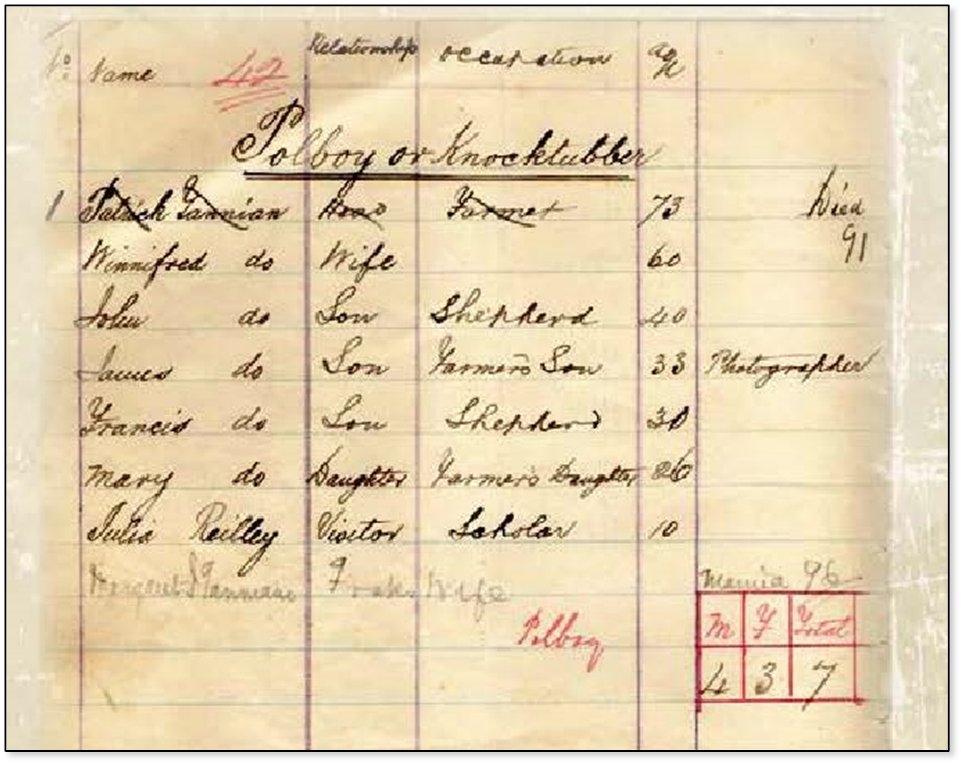 No: Name 42 Relationship Occupation age
Polboy or Knocktubber
1 Patrick Fannian Head Farmer 73 Died 91
Winnifred do Wife 60
John do Son Shepherd 40
James do Son Farmer's Son 33 Photographer
Francis do Son Shepherd 30
Mary do Daughter Farmer's Daughter 26
Julia Reilley Visitor Scholar 10
Margaret Wife 96
Polboy
M F Total
4 3 7